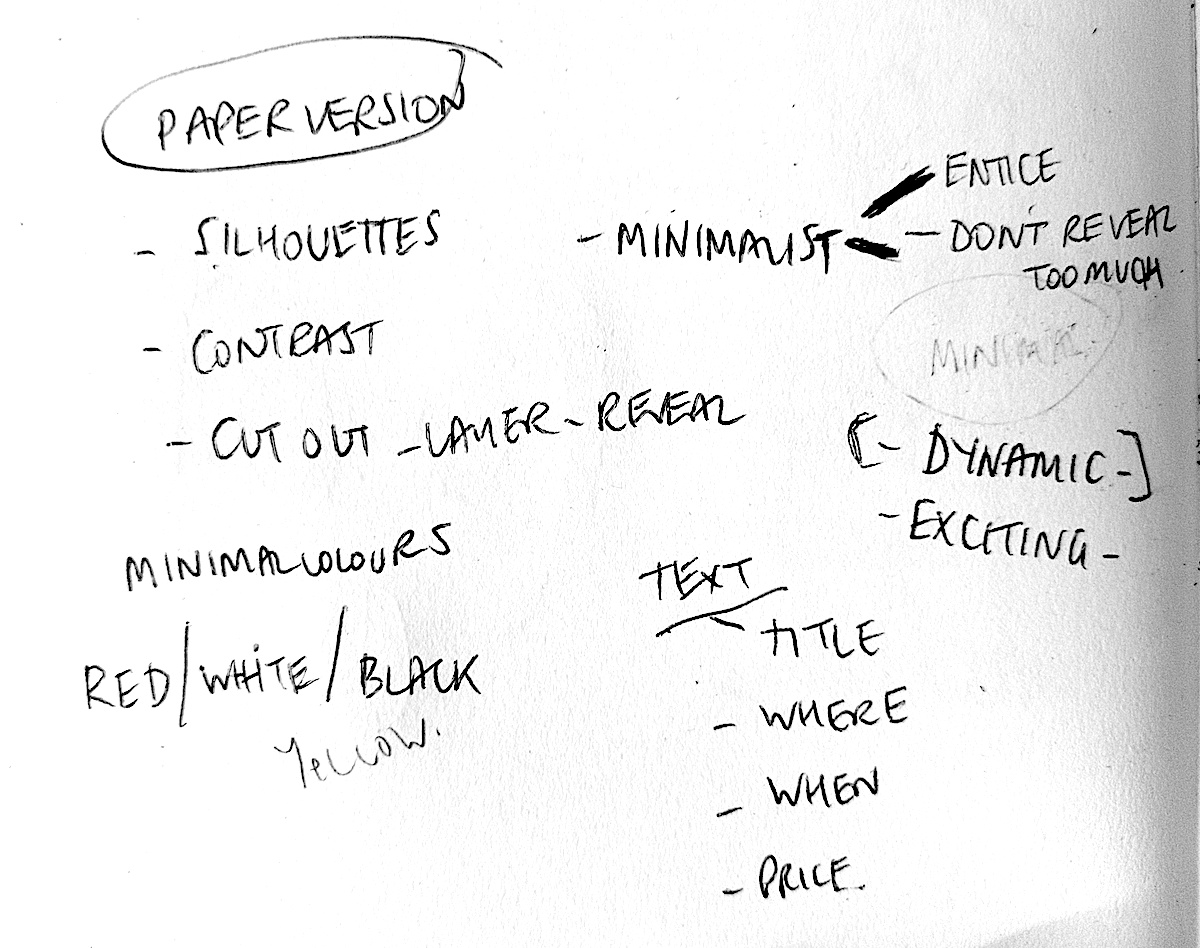 PAPER VERSION
- SILHOUETTES
- CONTRAST
- CUT OUT - LAYER - REVEAL
- MINIMALIST
ENTICE
- DON'T REVEAL
TOO MUCH
MINIMAL
[- DYNAMIC -]
- EXCITING -
MINIMAL COLOURS
RED/WHITE/BLACK
YELLOW.
TEXT
- TITLE
- WHERE
- WHEN
- PRICE.